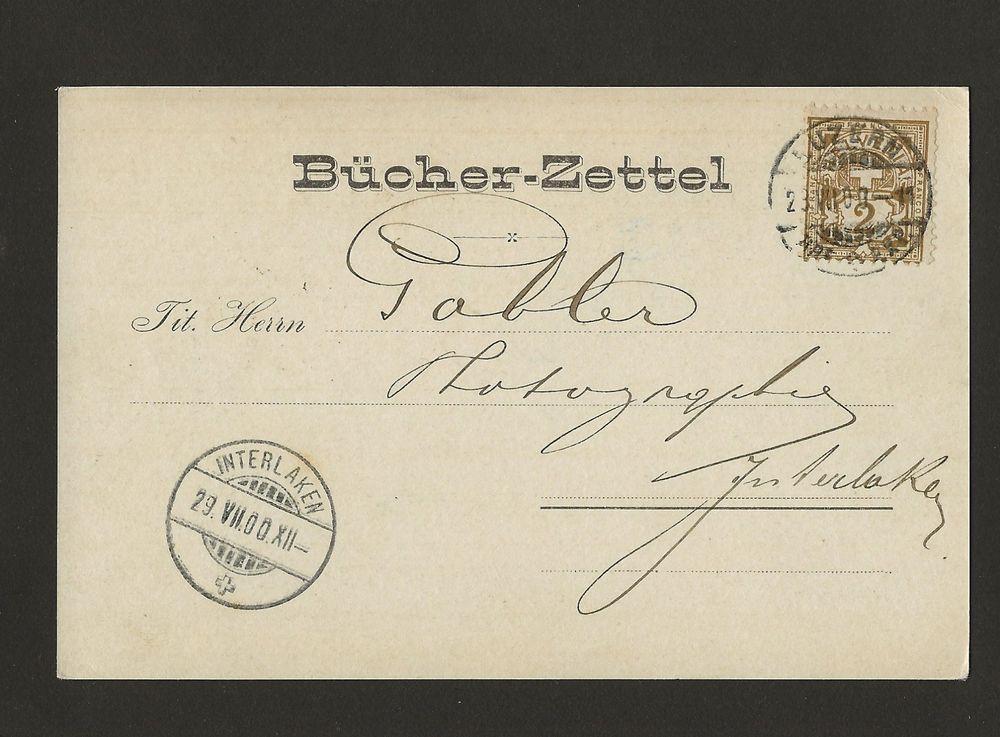 Bücher-Zettel
x
LUZERN
2
FRANCO
Tit. Herrn Gabler
Photographie
Interlaken
INTERLAKEN
29. VII.00.XII–